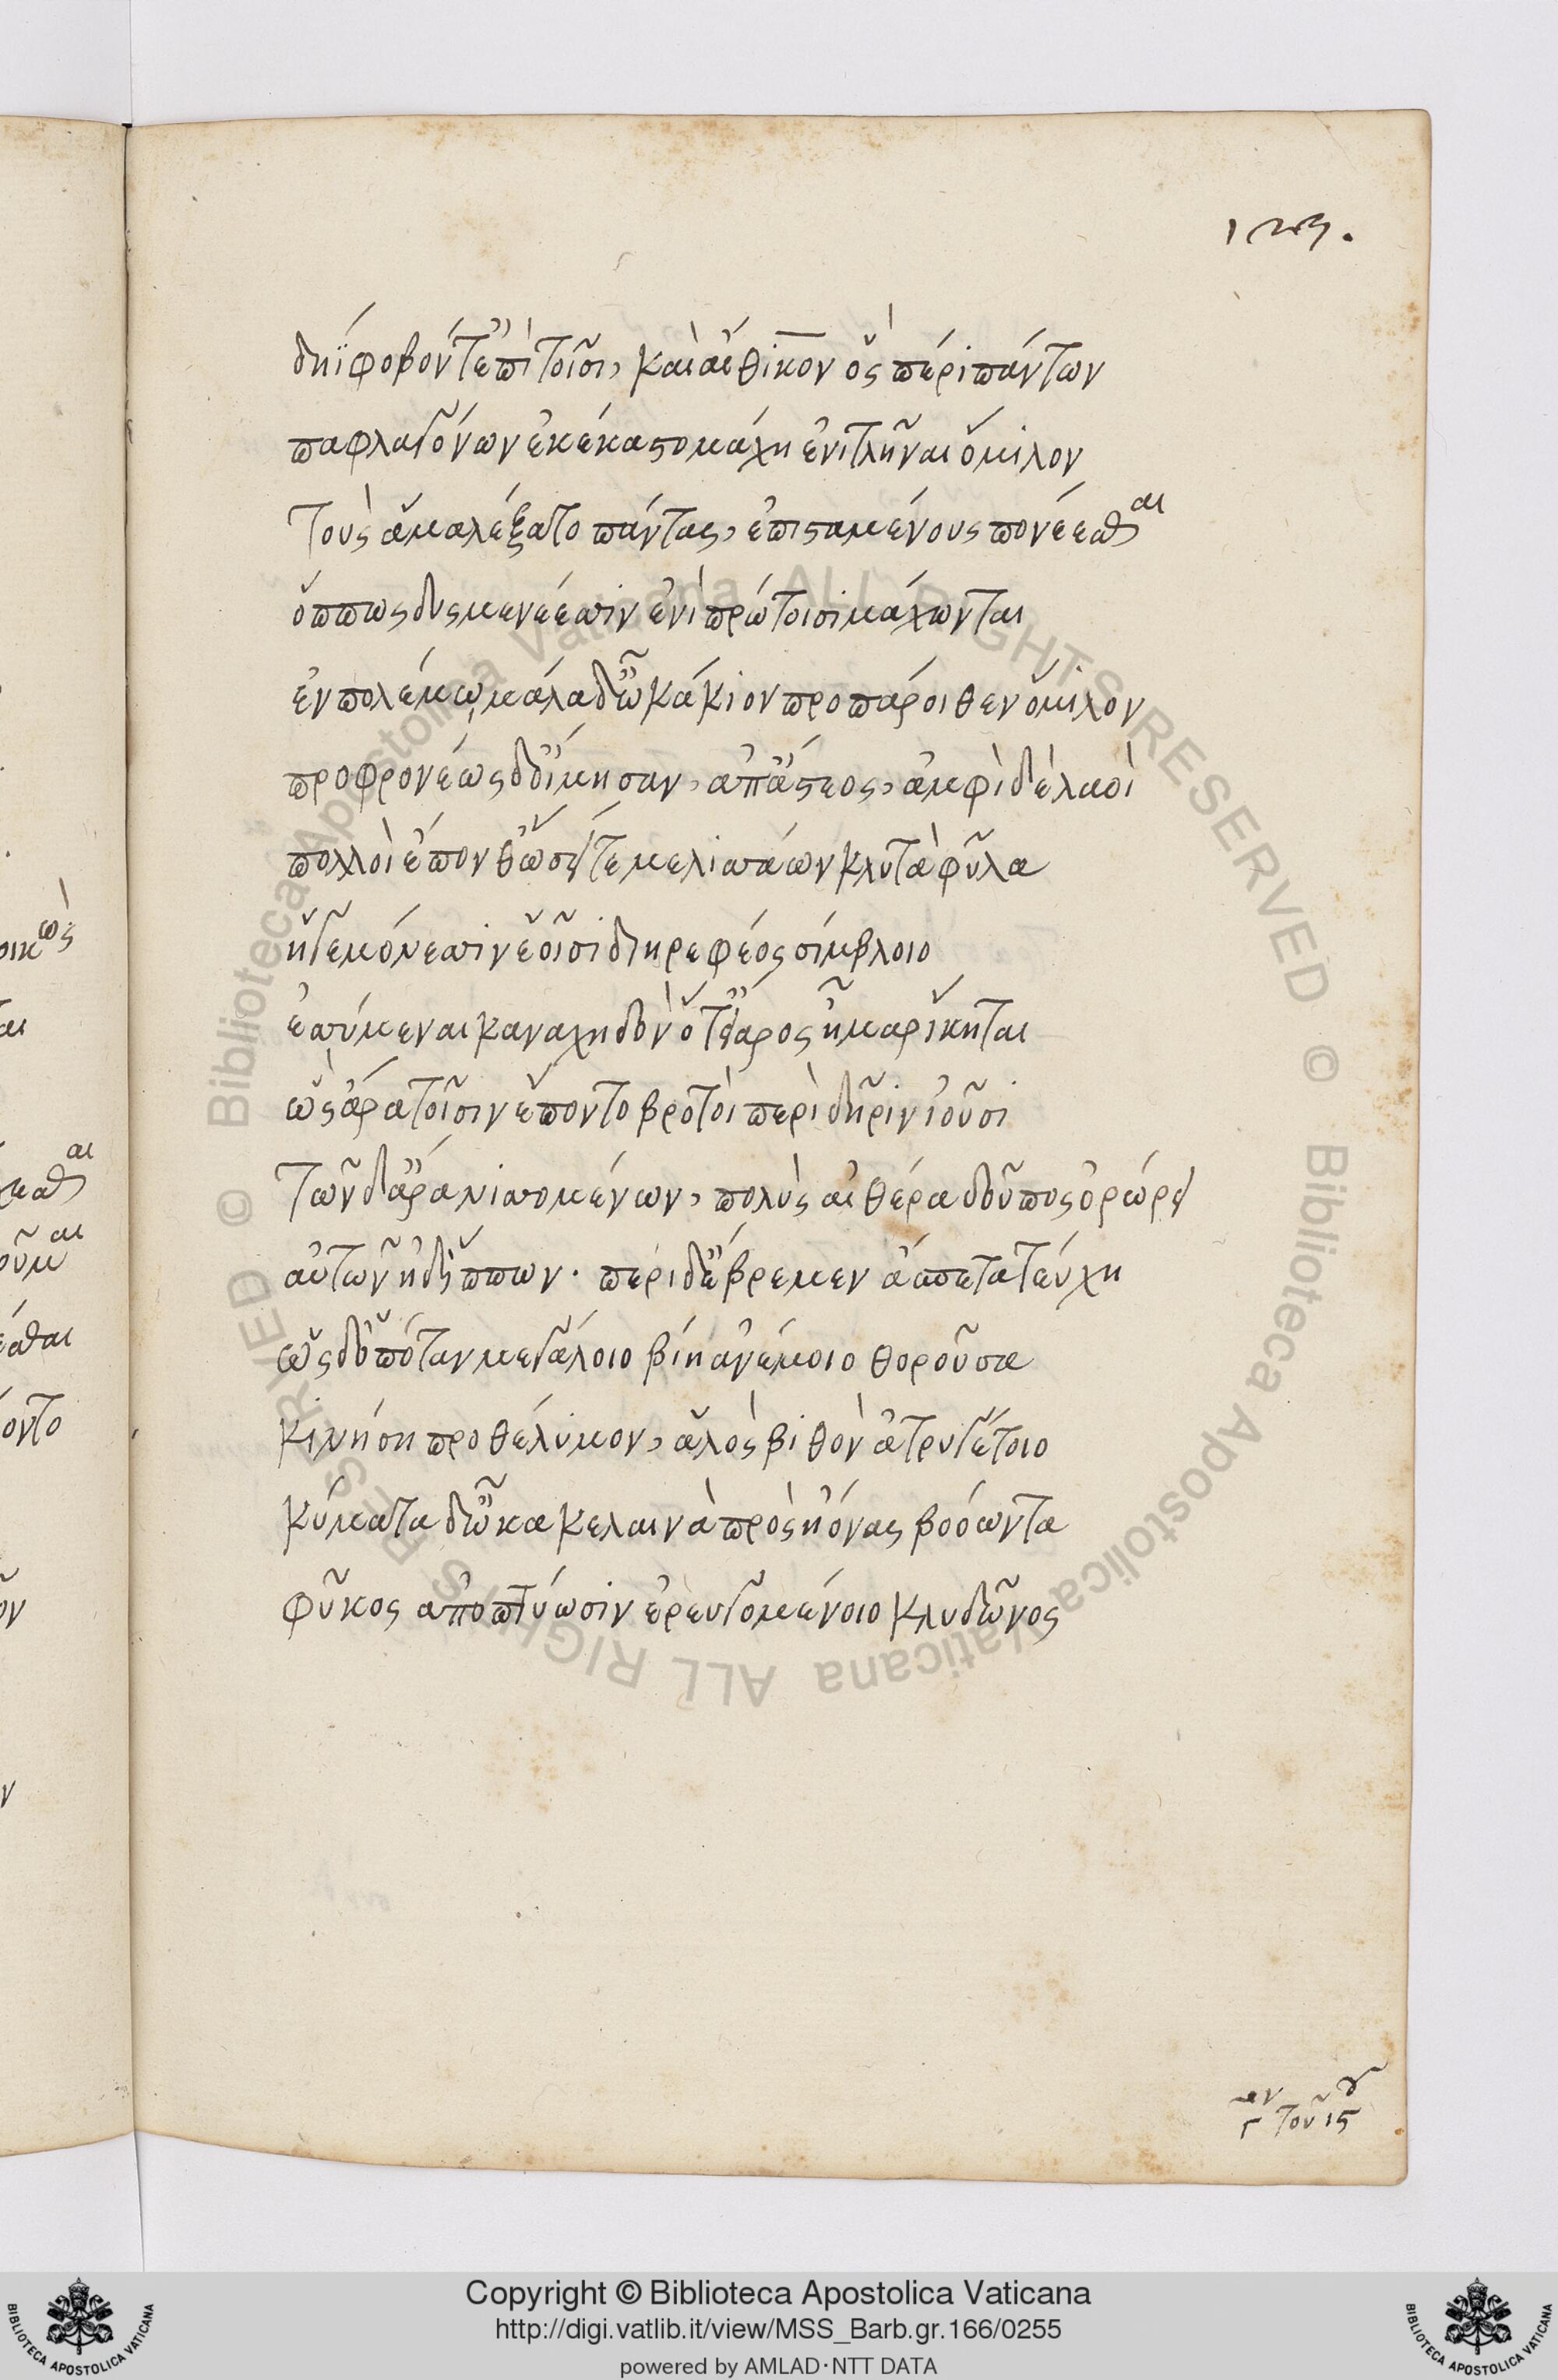 δηΐφοβόν τ' ἐπὶ τοῖσι, καὶ αἴθικον ὃς πέρι πάντων
παφλαγόνων ἐκέκαστο μάχη ἐνι τλῆναι ὅμιλον
τοὺς ἅμα λέξατο πάντας, ἐπισταμένους πονέεσθαι
ὅππως δυσμενέεσσιν ἐνὶ πρώτοισι μάχωνται
ἐν πολέμω, μάλα δ' ὦκα κίον προπάροιθεν ὁμίλου
προφρονέως δ' οἴμησαν, ἀπ' ἄστεος, ἀμφὶ δὲ λαοὶ
πολλοὶ ἕπονθ' ὥσεί τε μελισσάων κλυτὰ φῦλα
ἡγεμόνεσσιν ἑοῖσι διηρεφέος σίμβλοιο
ἐσσύμεναι καναχηδὸν ὅτ' εἴαρος ἦμαρ ἵκηται
ὣς ἄρα τοῖσιν ἕποντο βροτοὶ περὶ δῆριν ἰοῦσι
τῶν δ' ἄρα νισσομένων, πολὺς αἰθέρα δοῦπος ὀρώρει
αὐτῶν ἠδ' ἵππων. περὶ δ' ἔβρεμεν ἄσπετα τεύχη
ὡς δ' ὁπόταν μεγάλοιο βίη ἀνέμοιο θοροῦσα
κινήση προθέλυμνον, ἁλὸς βιθὸν ἀτρυγέτοιο
κύματα δ' ὦκα κελαινὰ πρὸς ἠόνας βοόωντα
φῦκος ἀποπτύωσιν ἐρευγομένοιο κλυδῶνος
τοῦ ις
Copyright © Biblioteca Apostolica Vaticana
http://digi.vatlib.it/view/MSS_Barb.gr.166/0255
powered by AMLAD·NTT DATA